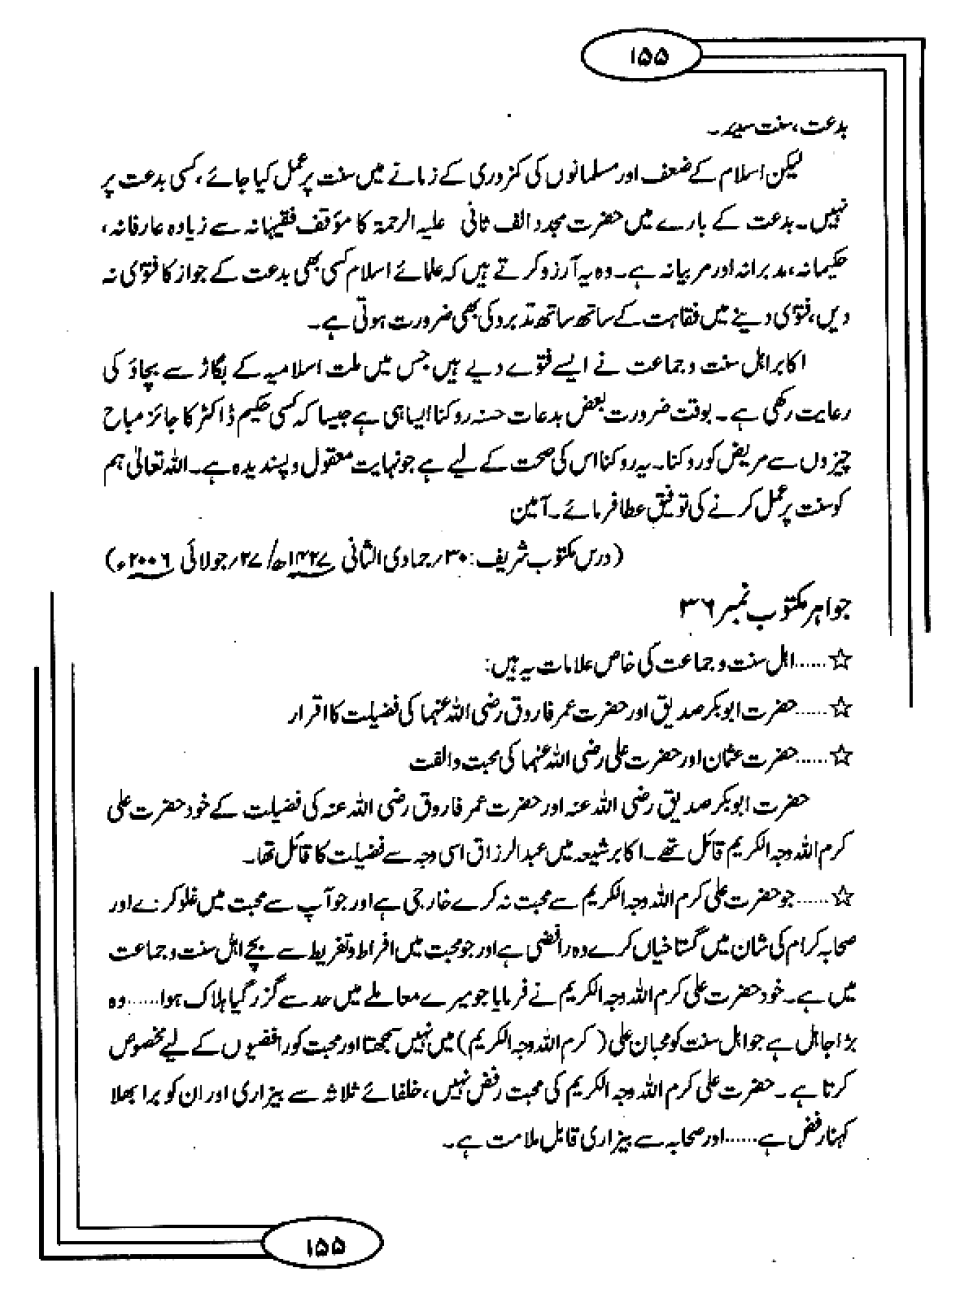 ۱۵۵
بدعت، سنت سیئہ۔
لیکن اسلام کے ضعف اور مسلمانوں کی کمزوری کے زمانے میں سنت پر عمل کیا جائے، کسی بدعت پر
نہیں۔ بدعت کے بارے میں حضرت مجدد الف ثانی علیہ الرحمۃ کا مؤقف فقیہانہ سے زیادہ عارفانہ،
حکیمانہ، مدبرانہ اور مربیانہ ہے۔ وہ یہ آرزو کرتے ہیں کہ علمائے اسلام کسی بھی بدعت کے جواز کا فتوٰی نہ
دیں، فتوٰی دینے میں فقاہت کے ساتھ ساتھ تدبر کی بھی ضرورت ہوتی ہے۔
اکابر اہل سنت و جماعت نے ایسے فتوے دیے ہیں جس میں ملت اسلامیہ کے بگاڑ سے بچاؤ کی
رعایت رکھی ہے۔ بوقت ضرورت بعض بدعات حسنہ روکنا ایسا ہی ہے جیسا کہ کسی حکیم ڈاکٹر کا جائز مباح
چیزوں سے مریض کو روکنا۔ یہ روکنا اس کی صحت کے لیے ہے جو نہایت معقول و پسندیدہ ہے۔ اللہ تعالیٰ ہم
کو سنت پر عمل کرنے کی توفیق عطا فرمائے۔ آمین
(درس مکتوب شریف: ۳۰؍ جمادی الثانی ۱۴۲۷ھ/ ۲۷؍ جولائی ۲۰۰۶ء)
جواہر مکتوب نمبر ۳۶
☆......اہل سنت و جماعت کی خاص علامات یہ ہیں:
☆......حضرت ابوبکر صدیق اور حضرت عمر فاروق رضی اللہ عنہما کی فضیلت کا اقرار
☆......حضرت عثمان اور حضرت علی رضی اللہ عنہما کی محبت و الفت
حضرت ابوبکر صدیق رضی اللہ عنہ اور حضرت عمر فاروق رضی اللہ عنہ کی فضیلت کے خود حضرت علی
کرم اللہ وجہہ الکریم قائل تھے۔ اکابر شیعہ میں عبدالرزاق اسی وجہ سے فضیلت کا قائل تھا۔
☆......جو حضرت علی کرم اللہ وجہہ الکریم سے محبت نہ کرے خارجی ہے اور جو آپ سے محبت میں غلو کرے اور
صحابہ کرام کی شان میں گستاخیاں کرے وہ رافضی ہے اور جو محبت میں افراط و تفریط سے بچے اہل سنت و جماعت
میں ہے۔ خود حضرت علی کرم اللہ وجہہ الکریم نے فرمایا جو میرے معاملے میں حد سے گزر گیا ہلاک ہوا......وہ
بڑا جاہل ہے جو اہل سنت کو محبان علی (کرم اللہ وجہہ الکریم) میں نہیں سمجھتا اور محبت کو رافضیوں کے لیے مخصوص
کرتا ہے۔ حضرت علی کرم اللہ وجہہ الکریم کی محبت رفض نہیں، خلفائے ثلاثہ سے بیزاری اور ان کو برا بھلا
کہنا رفض ہے......اور صحابہ سے بیزاری قابل ملامت ہے۔
۱۵۵